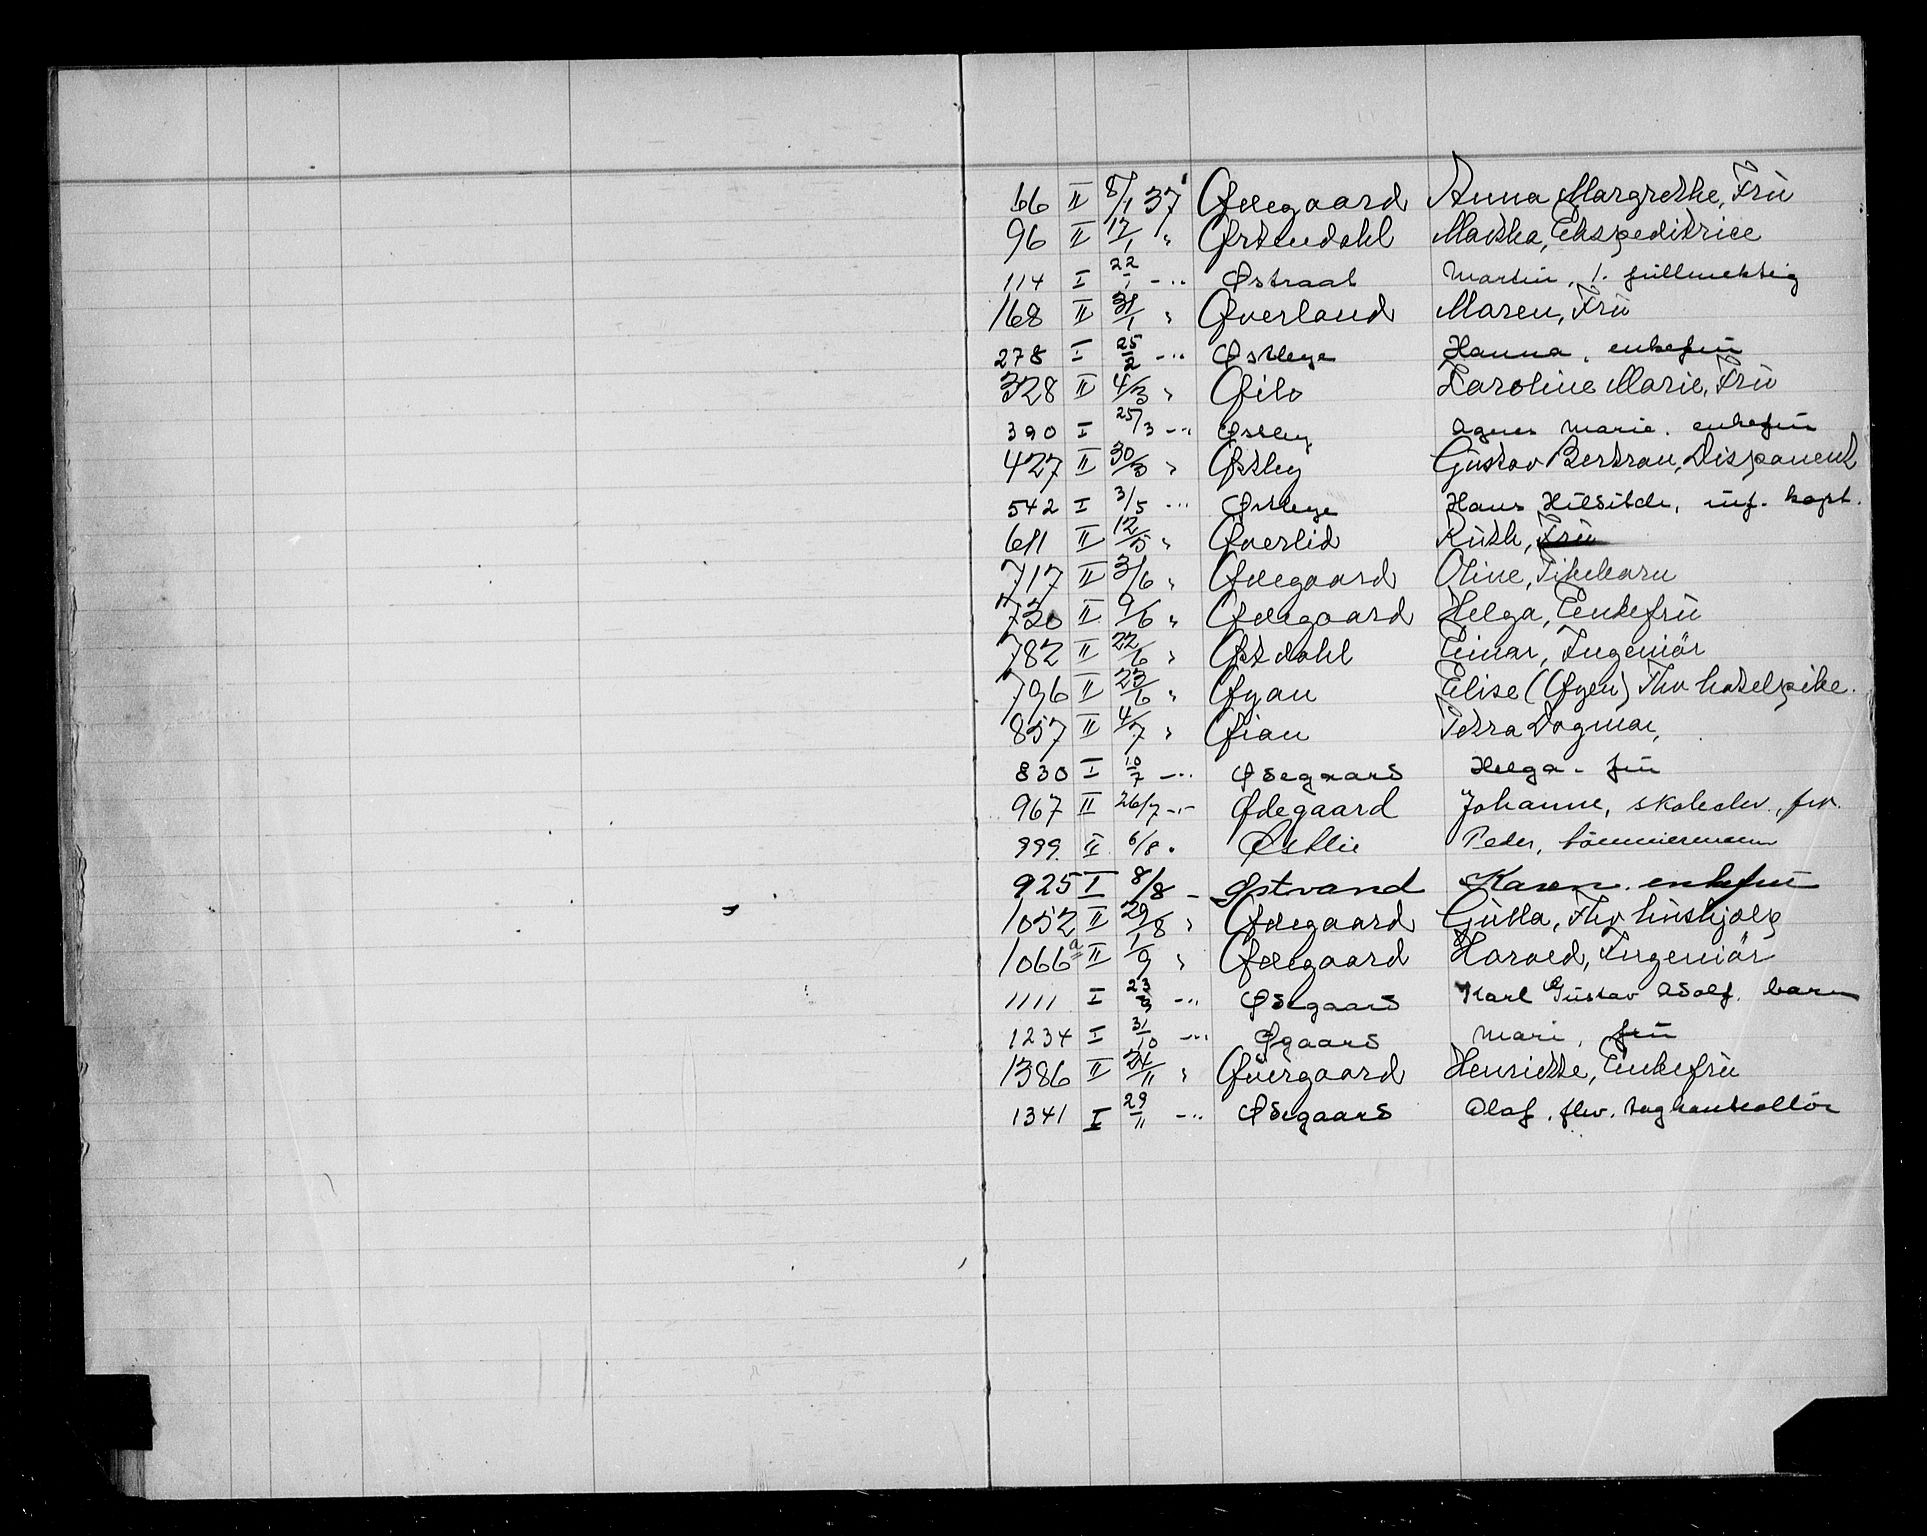 66 II 8/1 37 Ødegaard Anna Margrethe, Frü
96 II 12/1 " Østendahl Maksha, Ekspeditrice
114 I 22/1 -"- Østraat Martin, 1. füllmektig
168 II 31/1 " Øverland Maren, Frü
278 I 25/2 -"- Østbye Hanna, enkefrü
328 II 4/3 " Øilo Karoline Marie, Frü
390 I 25/3 -"- Østby Agnes Marie, enkefrü
427 II 30/3 " Østby Güstav Bertran, Disponent
542 I 3/5 -"- Østbye Hans, inf. kapt.
611 II 12/5 " Øverlid Rüth, Frü
717 II 3/6 " Ødegaard Oline, Pikebarn
730 II 9/6 " Ødegaard Helga, Enkefrü
782 II 22/6 " Østdahl Einar, Ingeniör
796 II 23/6 " Øyan Elise (Øyen) Fhv hotelpike.
857 II 4/7 " Øian Petra Dagmar,
830 I 10/7 -"- Ødegaard Helga. frü
967 II 26/7 -"- Ødegaard Johanne, skoleelev, frk.
999. II 6/8 " Østlie Peder, tömmermann
925 I 8/8 - Østvand Karen. enkefrü
1052 II 29/8 " Ødegaard Gütta, Fhv hüshjelp
1066a II 1/9 " Ødegaard Harald, Ingeniör
1111 I 23/9 -"- Ødegaard Karl Güstav Adolf, barn
1234 I 31/10 -"- Øgaard Mari, frü
1386 II 24/11 " Øüergaard Henriette, Enkefrü
1341 I 29/11 -"- Ødegaard Olaf, fhv. togkontrollör